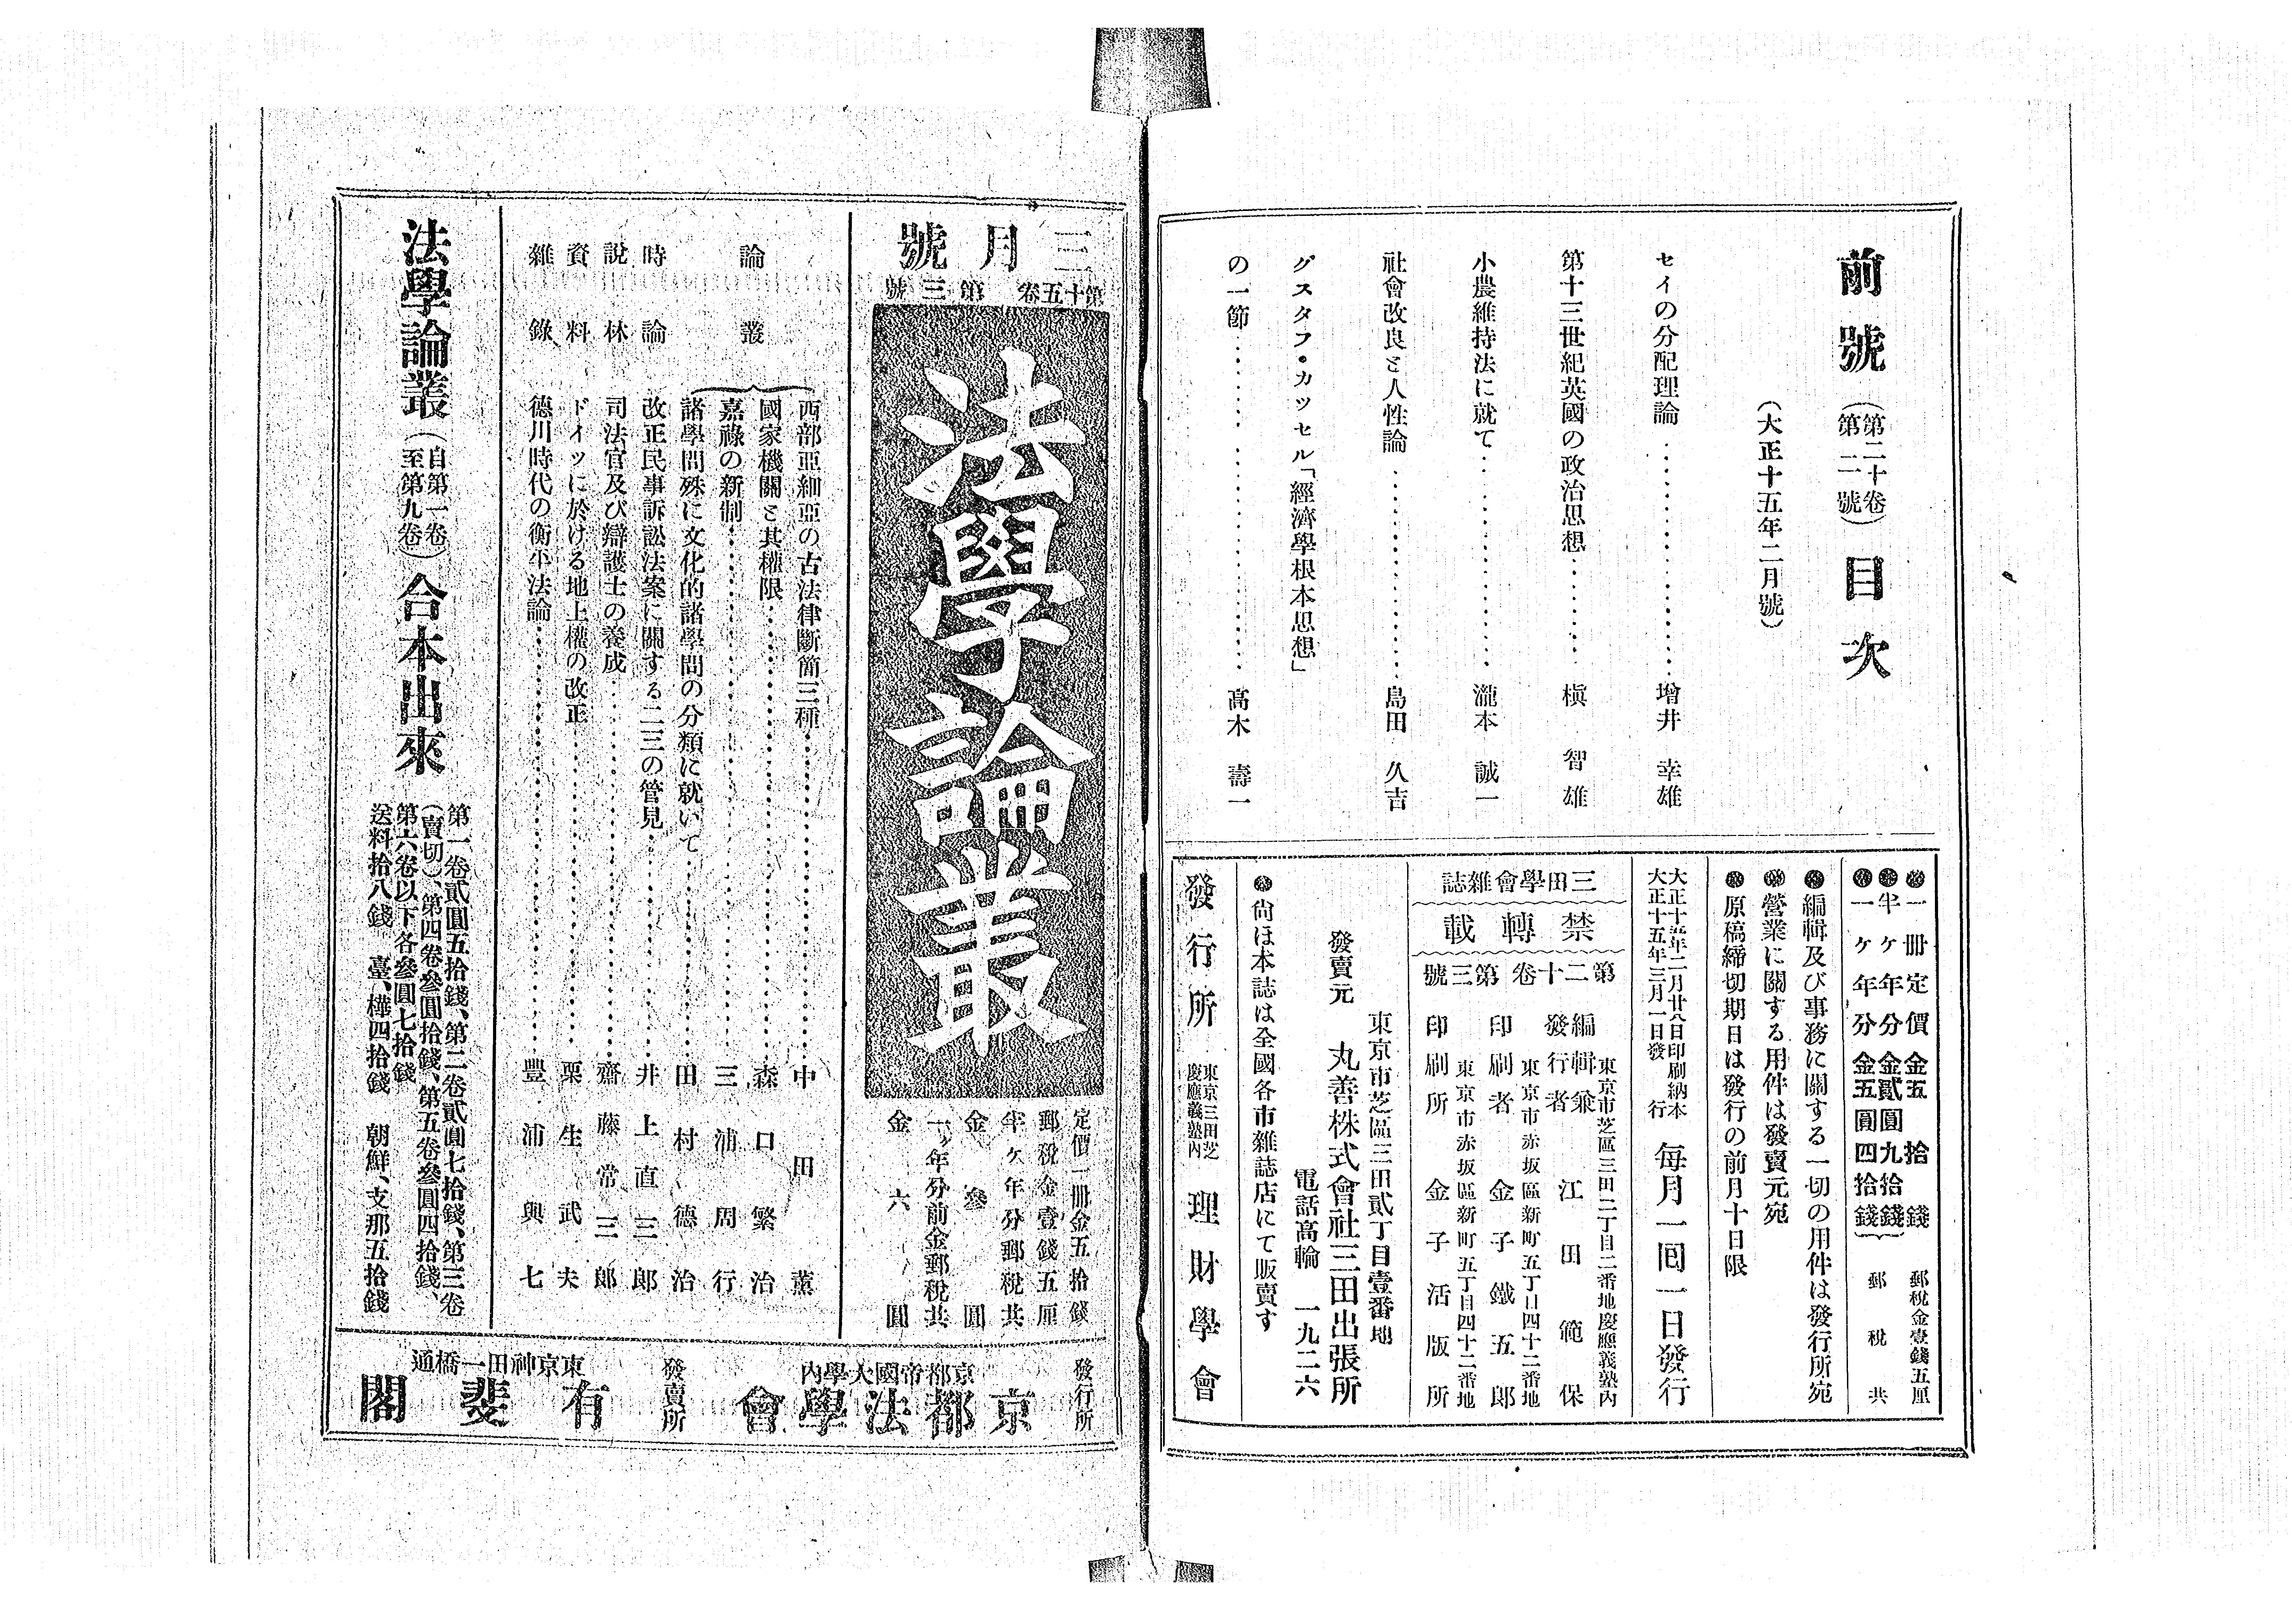 前號（第二十卷第二號）目次
（大正十五年二月號）
セイの分配理論…………增井幸雄
第十三世紀英國の政治思想…………槇智雄
小農維持法に就て…………瀧本誠一
社會改良と人性論…………島田久吉
グスタフ・カッセル「經濟學根本思想」
の一節…………高木壽一
●一冊定價金五拾錢 郵税金壹錢五厘
●半ケ年分金貳圓九拾錢
●一ケ年分金五圓四拾錢
郵税共
●編輯及び事務に關する一切の用件は發行所宛
●營業に關する用件は發賣元宛
●原稿締切期日は發行の前月十日限
大正十五年二月廿八日印刷納本
大正十五年三月一日發行
每月一回一日發行
三田學會雜誌
禁轉載
第二十卷第三號
東京市芝區三田二丁目二番地慶應義塾内
編輯兼發行者 江田範保
東京市赤坂區新町五丁目四十二番地
印刷者 金子鐵五郎
東京市赤坂區新町五丁目四十二番地
印刷所 金子活版所
東京市芝區三田貳丁目壹番地
發賣元 丸善株式會社三田出張所
電話高輪一九二六
●尙ほ本誌は全國各市雜誌店にて販賣す
發行所 東京三田芝慶應義塾内 理財學會
三月號
第十五卷 第三號
法學論叢
定價一冊金五拾錢
郵税金壹錢五厘
半ケ年分郵税共
金參圓
一ケ年分前金郵税共
金六圓
論叢
西部亞細亞の古法律斷簡三種…………中田薰
國家機關と其權限…………森口繁治
嘉祿の新制…………三浦周行
諸學問殊に文化的諸學問の分類に就いて…………田村德治
時論 改正民事訴訟法案に關する二三の管見…………井上直三郎
說林 司法官及び辯護士の養成…………齋藤常三郎
資料 ドイツに於ける地上權の改正…………栗生武夫
雜錄 德川時代の衡平法論…………豐浦與七
法學論叢（自第一卷至第九卷）合本出來
第一卷貳圓五拾錢、第二卷貳圓七拾錢、第三卷
（賣切）、第四卷參圓拾錢、第五卷參圓四拾錢、
第六卷以下各參圓七拾錢
送料拾八錢 臺、樺四拾錢 朝鮮、支那五拾錢
發行所 京都帝國大學内 京都法學會
發賣所 東京神田一橋通 有斐閣